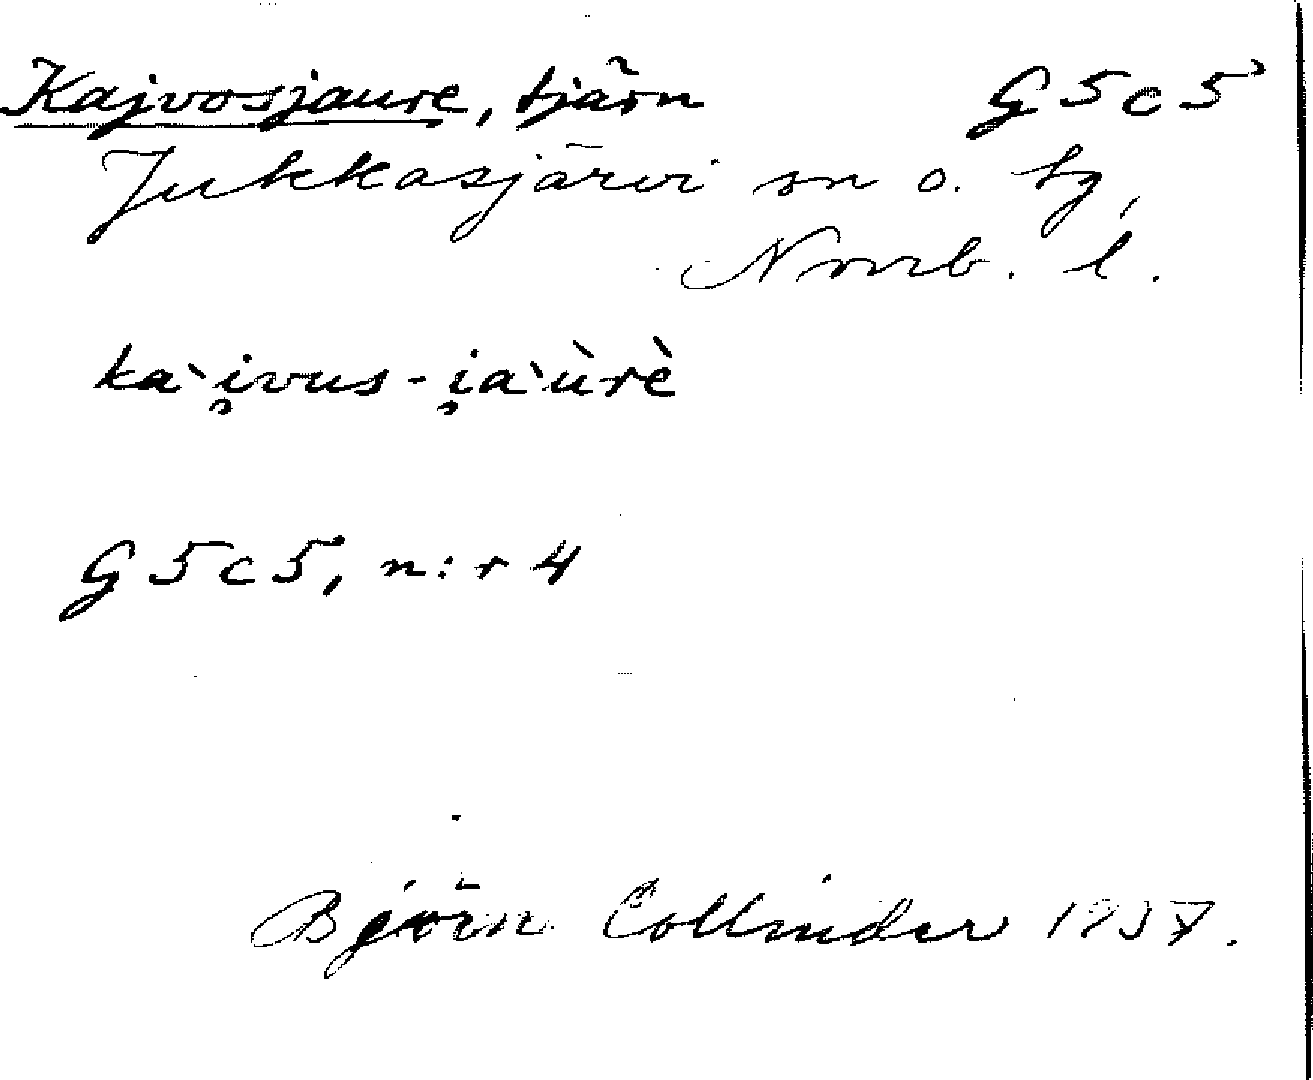 Kajvosjaure, tjärn G5c5
Jukkasjärvi sn o. tg,
Norrb. l.
ka`i̯vus-i̯a`ùrè
G5c5, n:r 4
Björn Collinder 1957.